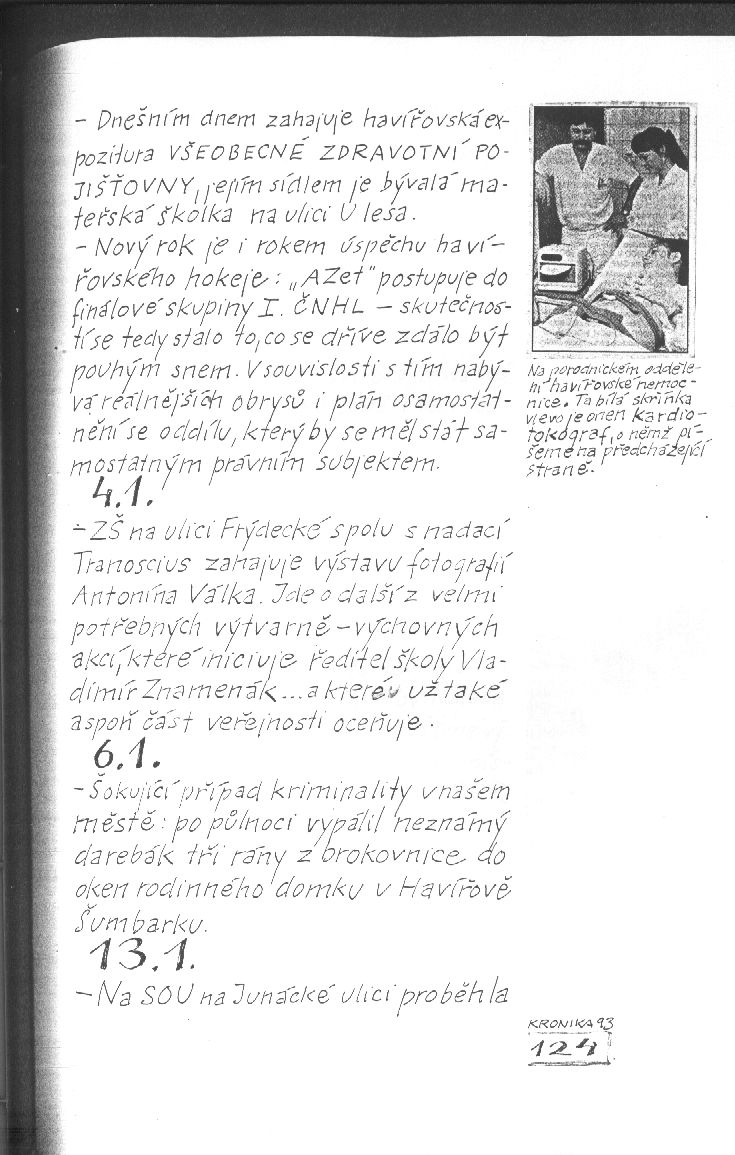 - Dnešním dnem zahajuje havířovská ex-
pozitura VŠEOBECNÉ ZDRAVOTNÍ PO-
JIŠŤOVNY, jejím sídlem je bývalá ma-
teřská školka na ulici U lesa.
- Nový rok je i rokem úspěchu haví-
řovského hokeje: „AZet" postupuje do
finálové skupiny I. ČNHL - skutečnos-
tí se tedy stalo to, co se dříve zdálo být
pouhým snem. V souvislosti s tím nabý-
vá reálnějších obrysů i plán osamostat-
nění se oddílu, který by se měl stát sa-
mostatným právním subjektem.
4.1.
- ZŠ na ulici Frýdecké spolu s nadací
Tranoscius zahajuje výstavu fotografií
Antonína Válka. Jde o další z velmi
potřebných výtvarně-výchovných
akcí, které iniciuje ředitel školy Vla-
dimír Znamenák... a které už také
aspoň část veřejnosti oceňuje.
6.1.
- Šokující případ kriminality v našem
městě: po půlnoci vypálil neznámý
darebák tři rány z brokovnice do
oken rodinného domku v Havířově
Šumbarku.
13.1.
- Na SOU na Junácké ulici proběhla
Na porodnickém odděle-
ní havířovské nemoc-
nice. Ta bílá skříňka
vlevo je onen kardio-
tokograf, o němž pí-
šeme na předcházející
straně.
KRONIKA 93
124